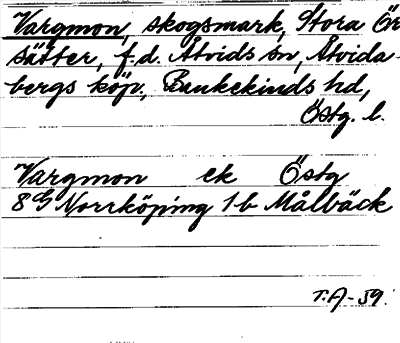 Vargmon, skogsmark, Stora Ör
sätter, f.d. Åtvids sn, Åtvida-
bergs köp., Bankekinds hd,
Östg. l.
Vargmon ek Östg
8 G Norrköping 1 b Målbäck
T.A-59.